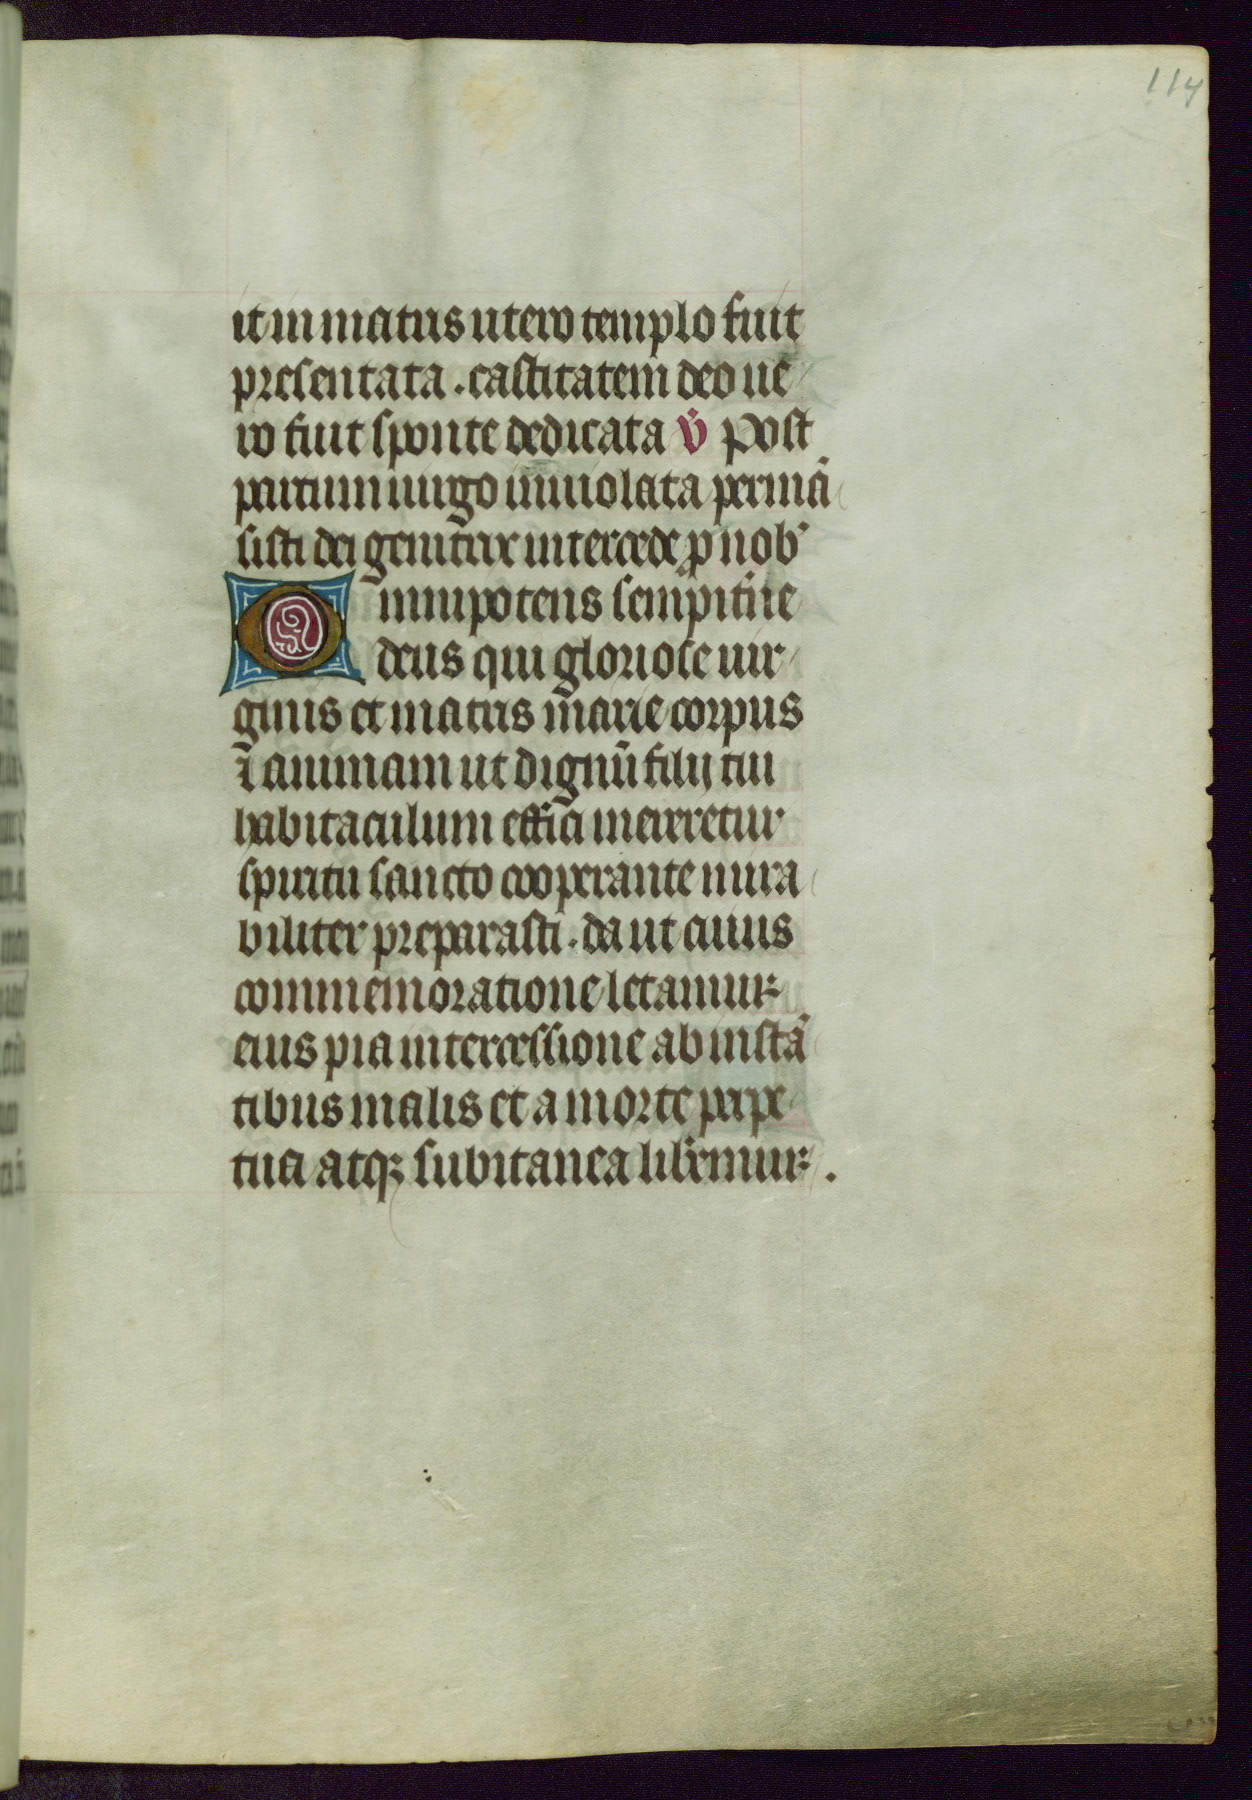 114
it in matris utero templo fuit
presentata . castitatem deo ue
ro fuit sponte dedicata v̇ Post
partum uirgo inuiolata permã
sisti dei genitrix intercede ꝓ nob'
Omnipotens sempit̾ne
deus qui gloriose uir
ginis et matris marie corpus
⁊ animam ut dignũ filij tui
habitaculum effici mereretur
spiritu sancto cooperante mira
biliter preparasti . da ut cuius
commemoratione letamur
eius pia intercessione ab instã
tibus malis et a morte perpe
tua atqꝫ subitanea lib̾emur .